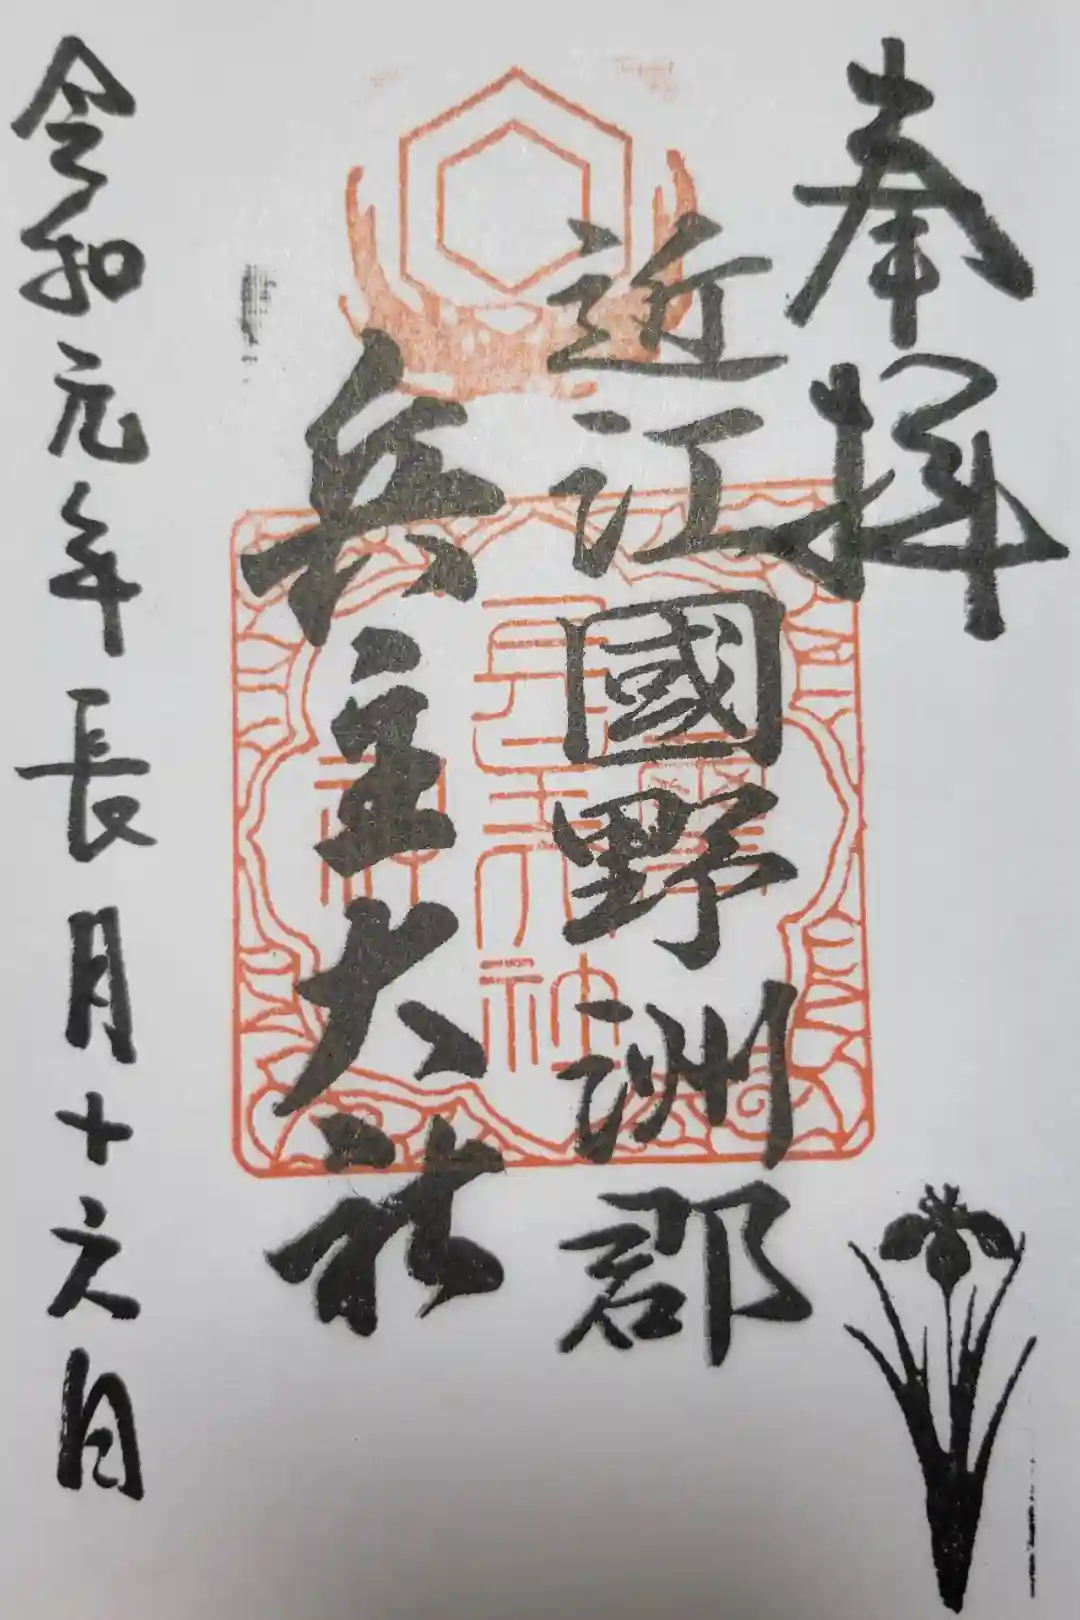 奉拝
近江國野洲郡
兵主大社
令和元年長月十六日